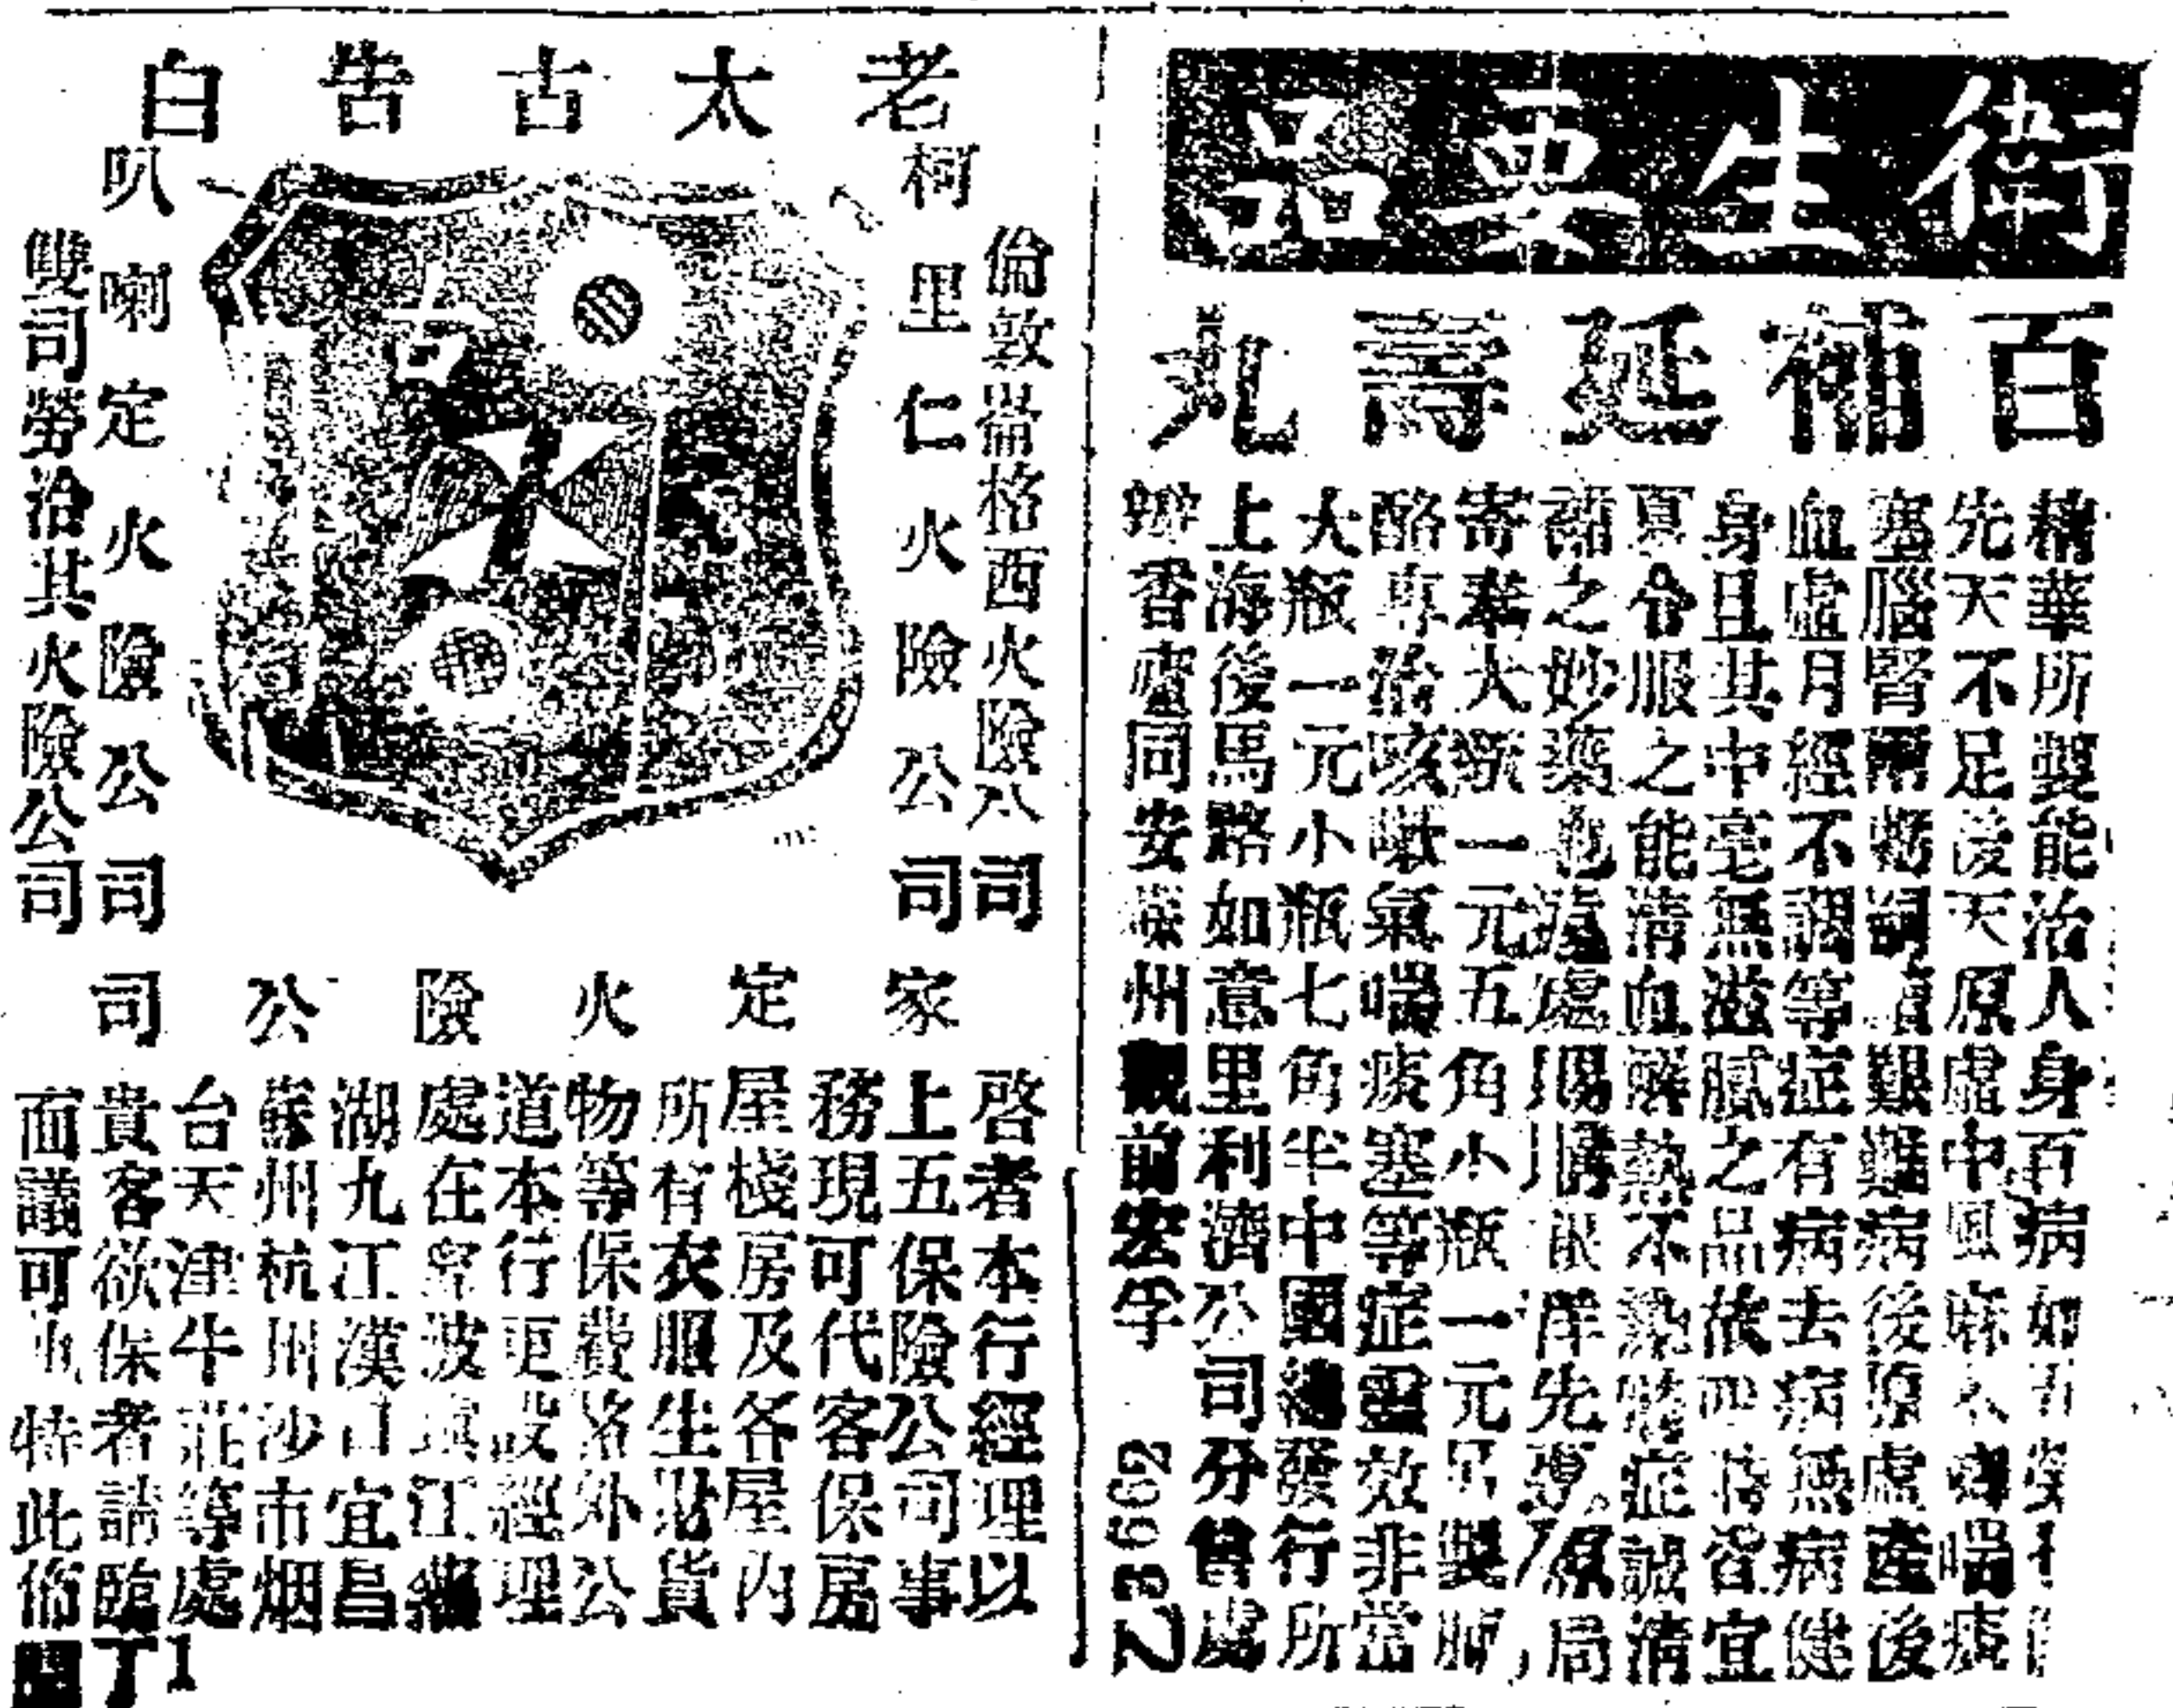 衛生要品
百補延壽丸
精華所製能治人身百病如
先天不足後天原虛中風麻木喘痰
塞腦腎兩虧嗣育艱難病後原虛產後
血虛月經不調等症有病去病無病健
身且其中毫無滋膩之品故四時皆宜
夏令服之能清血解熱不染時症誠清
之妙藥也處洋先局
寄奉大瓶一元五角小瓶一元另製肺
酪專治咳嗽氣喘痰塞等症靈效非常
大瓶一元小瓶七角半中國總發行所
上海後馬路如意里利濟公司分售處
香廬同安州觀前宏孚
乙3662
老太古告白
倫敦崙格西火險公司
柯里仁火險公司
叭喇定火險公司
雙司勞治其火險公司
家定火險公司
啓者本行經理以
上五保險公司事
務現可代客保房
屋棧房及各屋內
所有衣服生財貨
物等保費格外公
道本行更設經理
處在寧波鎮江蕪
湖九江漢口宜昌
蘇州杭州沙市烟
台天津牛莊等處
貴客欲保者請臨
面議可也特此佈聞
丁1